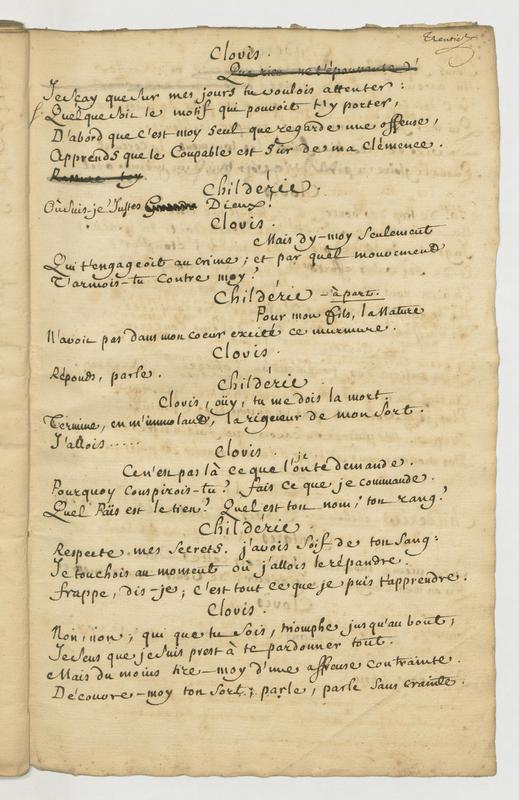 Clovis.
Que rien ne t'épouvante
Je sçay que sur mes jours tu voulois attenter:
Quelque soit le motif qui pouvoit t'y porter,
D'abord que c'est moy seul que regarde une offense,
Apprends que le Coupable est sûr de ma clémence.
Rassure toy
Childéric.
Où suis-je! Justes Dieux!
Clovis.
Mais dy-moy seulement
Qui t'engageoit au crime; et par quel mouvement
T'armois-tu contre moy?
Childéric - à part.
Pour mon fils, la Nature
N'avoit pas dans mon coeur excité ce murmure.
Clovis.
Réponds, parle.
Childéric.
Clovis, oüy, tu me dois la mort.
Termine, en m'immolant, la rigueur de mon Sort.
J'allois.....
Clovis.
Ce n'est pas là ce que l'on te demande.
je
Pourquoy conspirois-tu? fais ce que je commande.
Quel Païs est le tien? Quel est ton nom; ton rang?
Childéric.
Respecte mes Secrets. j'avois Soif de ton Sang:
Je touchois au moment où j'allois le répandre.
frappe, dis-je; c'est tout ce que je puis t'apprendre.
Clovis.
Non, non; qui que tu Sois, triomphe jusqu'au bout;
Je Sens que je Suis prest à te pardonner tout.
Mais du moins tire-moy d'une affreuse contrainte.
Découvre-moy ton Sort; parle, parle Sans crainte.